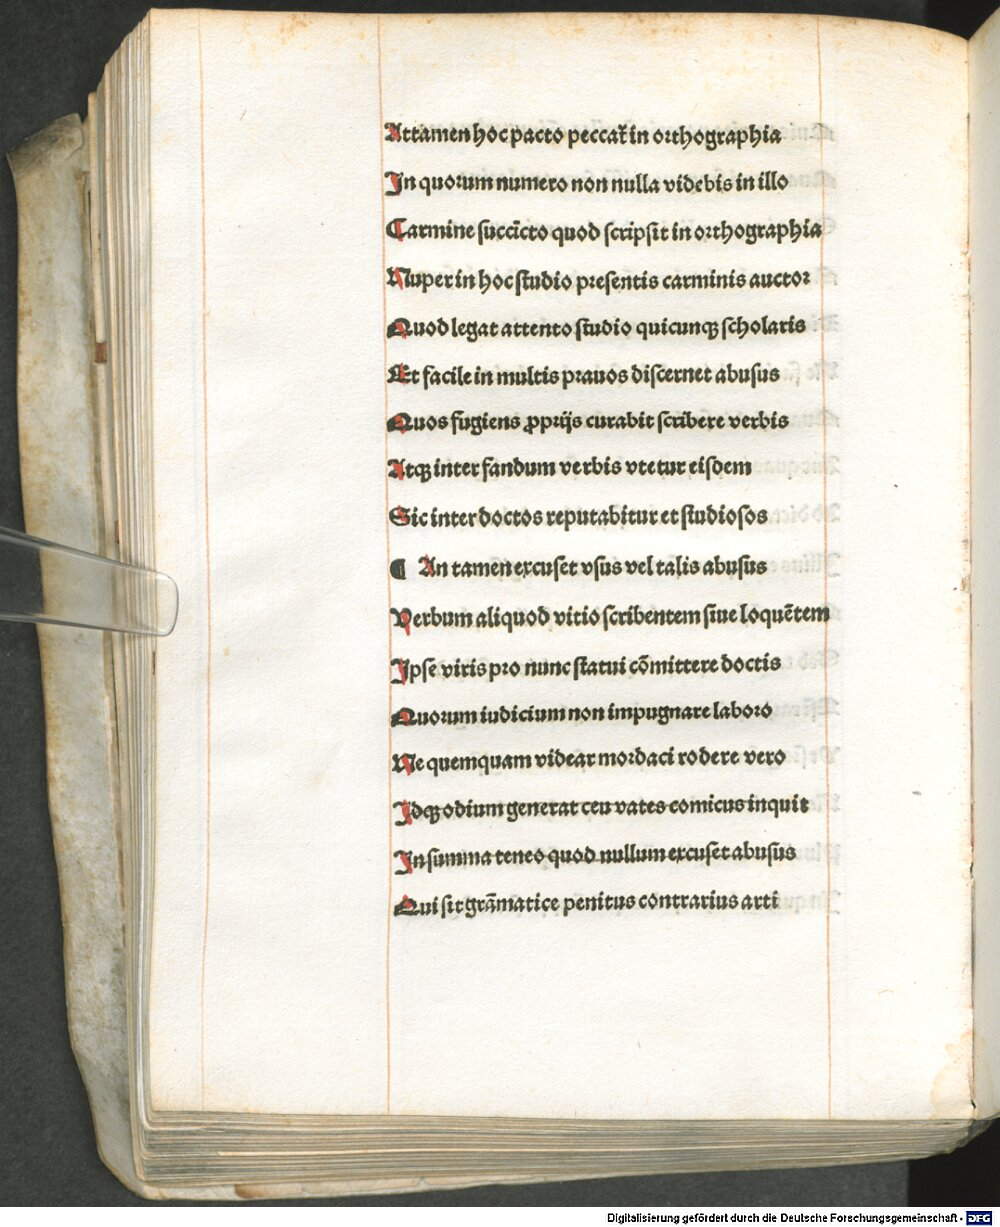 Attamen hoc pacto peccat᷑ in orthographia
In quorum numero non nulla videbis in illo
Carmine succīcto quod scripsit in orthographia
Nuper in hoc studio presentis carminis auctor
Quod legat attento studio quicunqꝫ scholaris
Et facile in multis prauos discernet abusus
Quos fugiens ꝓprijs curabit scribere verbis
Atqꝫ inter fandum verbis vtetur eisdem
Sic inter doctos reputabitur et studiosos
¶ An tamen excuset vsus vel talis abusus
Verbum aliquod vitio scribentem siue loquētem
Ipse viris pro nunc statui cōmittere doctis
Quorum iudicium non impugnare laboro
Ne quemquam videar mordaci rodere vero
Idqꝫ odium generat ceu vates comicus inquit
In summa teneo quod nullum excuset abusus
Qui sit grāmatice penitus contrarius arti
Digitalisierung gefördert durch die Deutsche Forschungsgemeinschaft - DFG